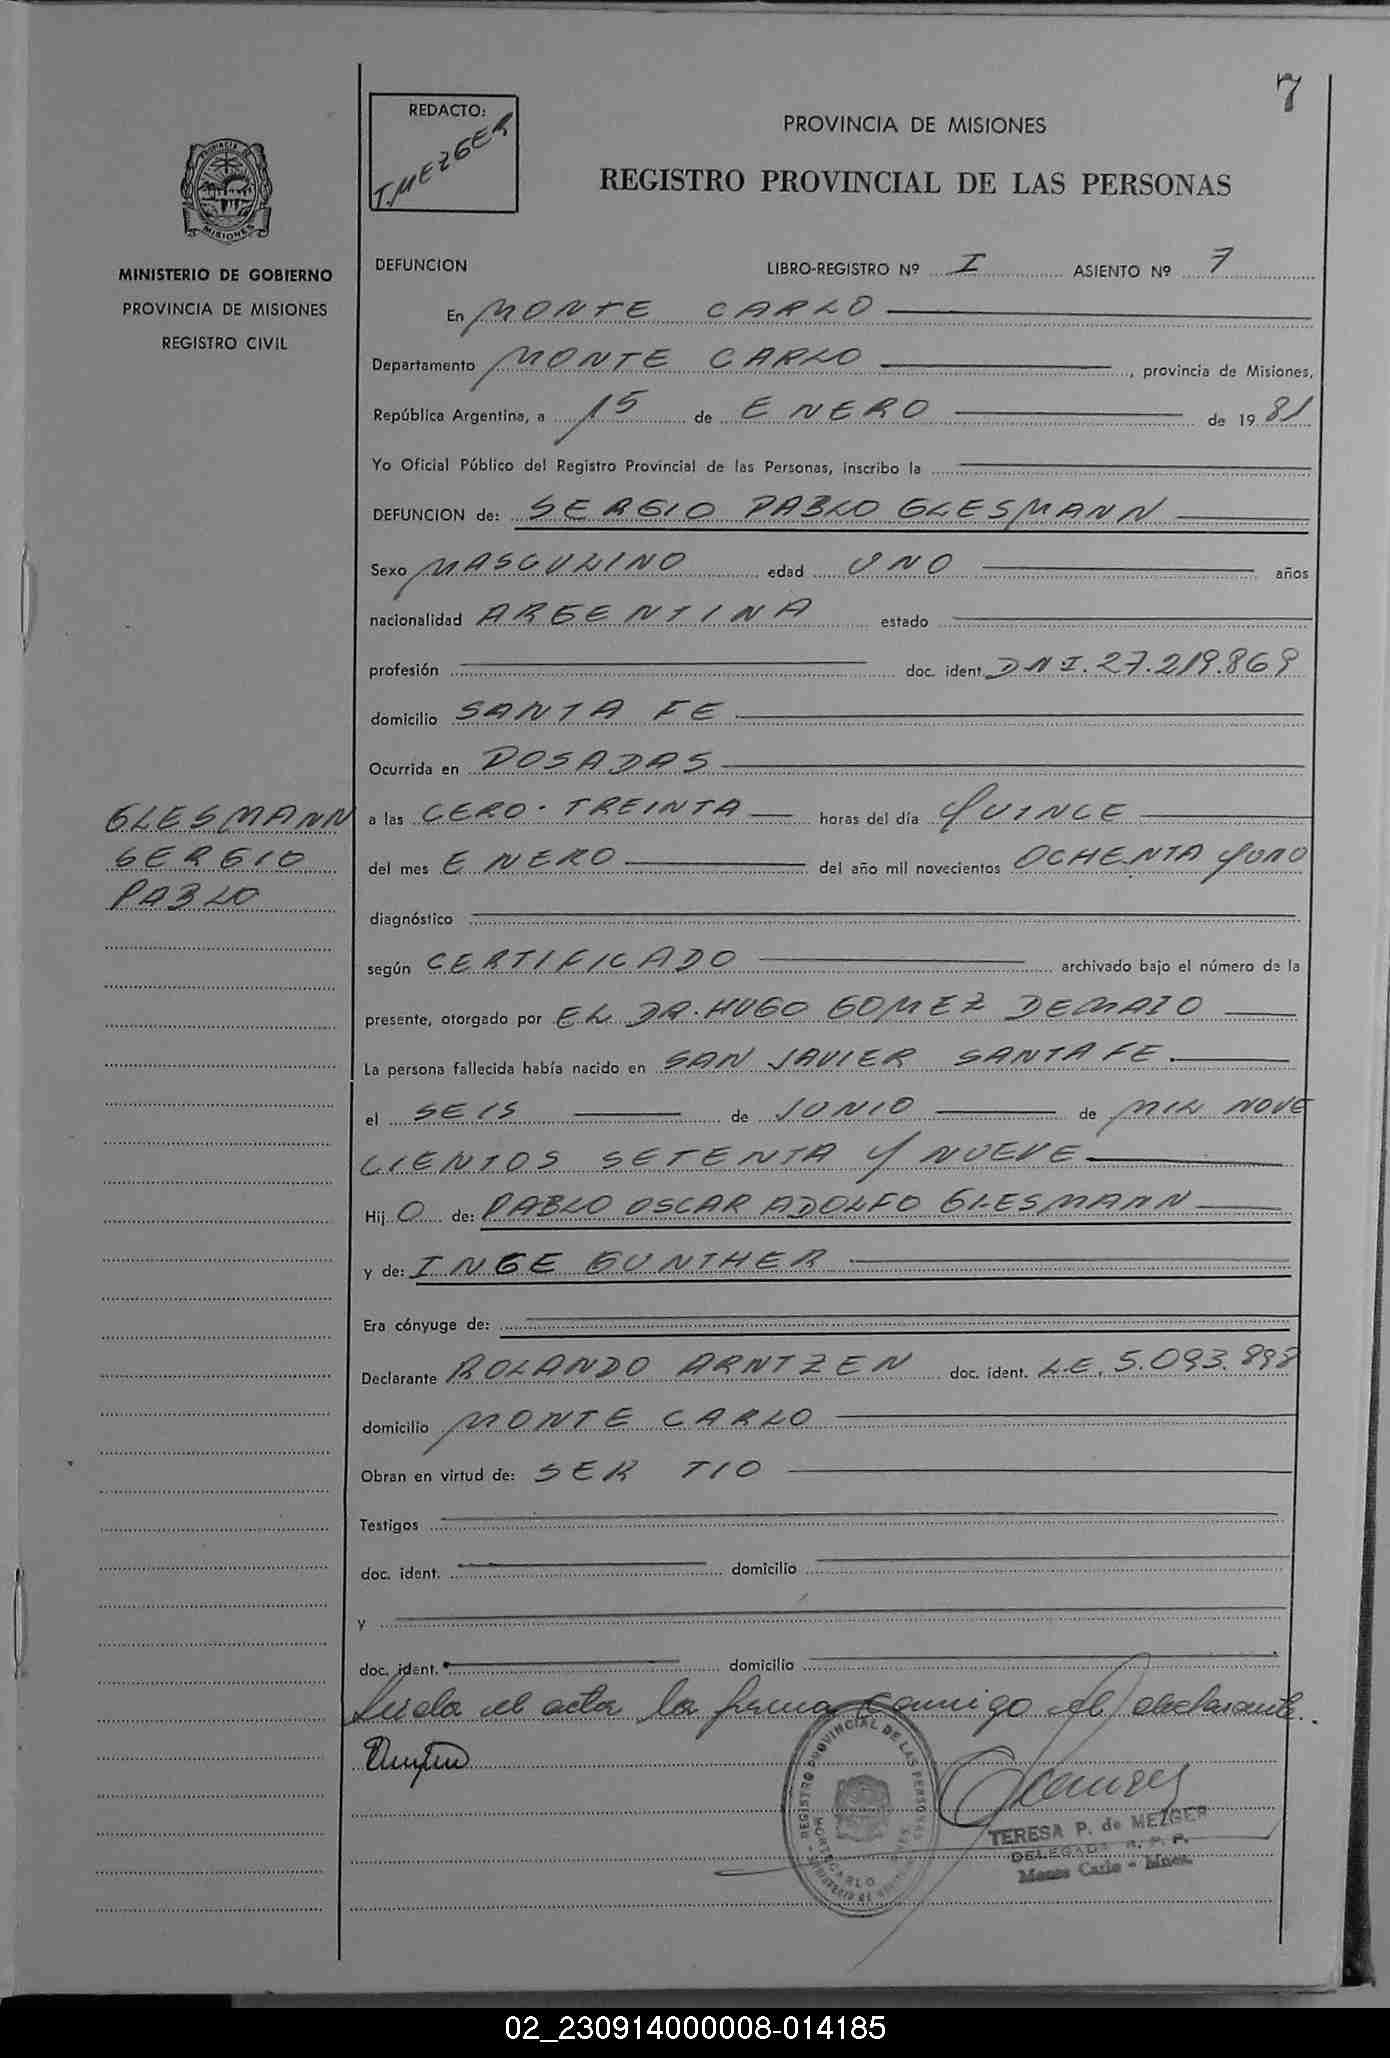 7
REDACTO:
T. MEZGER
PROVINCIA DE MISIONES
REGISTRO PROVINCIAL DE LAS PERSONAS
PROVINCIA DE MISIONES
MINISTERIO DE GOBIERNO
PROVINCIA DE MISIONES
REGISTRO CIVIL
DEFUNCION LIBRO-REGISTRO Nº I ASIENTO Nº 7
En MONTE CARLO
Departamento MONTE CARLO, provincia de Misiones,
República Argentina, a 15 de ENERO de 1981
Yo Oficial Público del Registro Provincial de las Personas, inscribo la
DEFUNCION de: SERGIO PABLO GLESMANN
Sexo MASCULINO edad UNO años
nacionalidad ARGENTINA estado
profesión doc. ident. DNI. 27.219.869
domicilio SANTA FE
Ocurrida en POSADAS
GLESMANN
SERGIO
PABLO
a las CERO - TREINTA horas del día QUINCE
del mes ENERO del año mil novecientos OCHENTA Y UNO
diagnóstico
según CERTIFICADO archivado bajo el número de la
presente, otorgado por EL DR. HUGO GOMEZ DEMAIO
La persona fallecida había nacido en SAN JAVIER SANTA FE
el SEIS de JUNIO de MIL NOVE
CIENTOS SETENTA Y NUEVE
Hij O de: PABLO OSCAR ADOLFO GLESMANN
y de: INGE GUNTHER
Era cónyuge de:
Declarante ROLANDO ARNTZEN doc. ident. L.E. 5.093.898
domicilio MONTE CARLO
Obran en virtud de: SER TIO
Testigos
doc. ident. domicilio
y
doc. ident. domicilio
Leida el acta la firma conmigo el declarante.
REGISTRO PROVINCIAL DE LAS PERSONAS
MONTECARLO
TERESA P. de MEZGER
DELEGADA R. P. P.
Monte Carlo - Mnes.
02_230914000008-014185